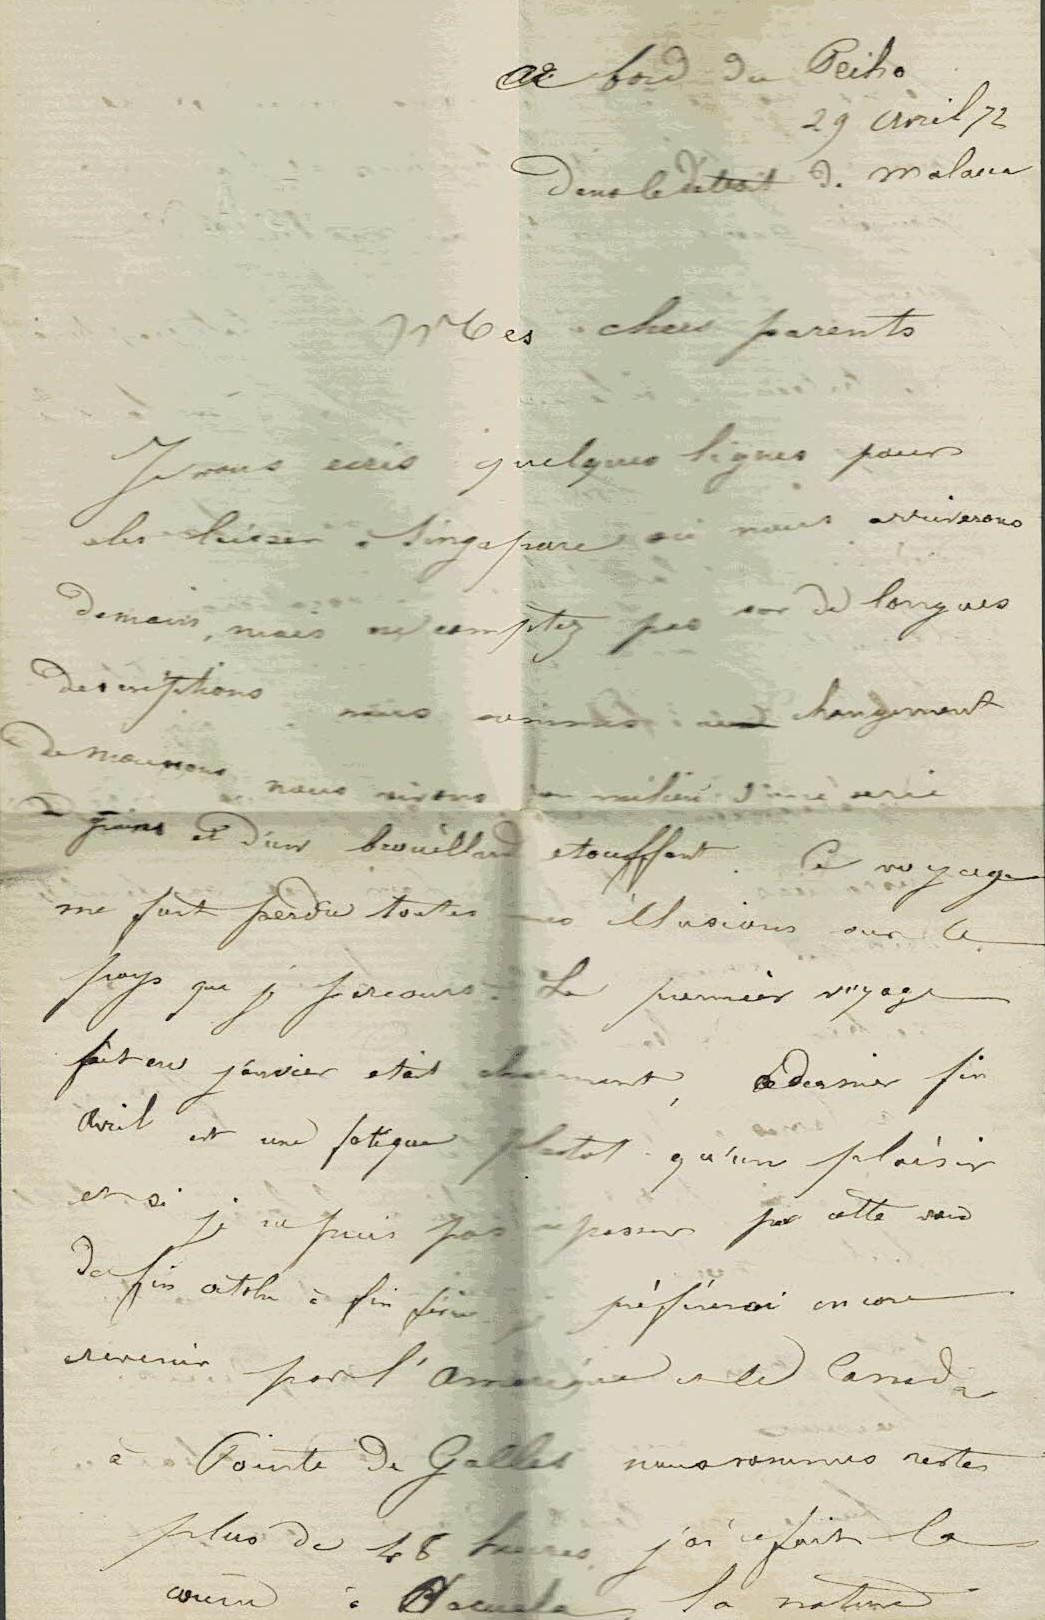 a bord du Peiho
29 avril 72
Dans le detroit d. Malacca
Mes chers parents
Je vous ecris quelques lignes pour
les laisser à Singapore où nous arriverons
demain, mais ne comptez pas sur de longues
descriptions nous sommes au changement
de moussons nous vivons au milieu d'une serie
de grains et d'un brouillard etouffant. Ce voyage
me fait perdre toutes mes illusions sur le
pays que je parcours. Le premier voyage
fait en janvier etait charmant, ce dernier fin
Avril est une fatigue plutot qu'un plaisir
et si je ne puis pas repasser par cette voie
de fin octobre à fin je préférerai encore
revenir par l'Amérique et le Canada
à Pointe de Galles nous sommes restes
plus de 48 heures, j'ai refait la
course à la nature